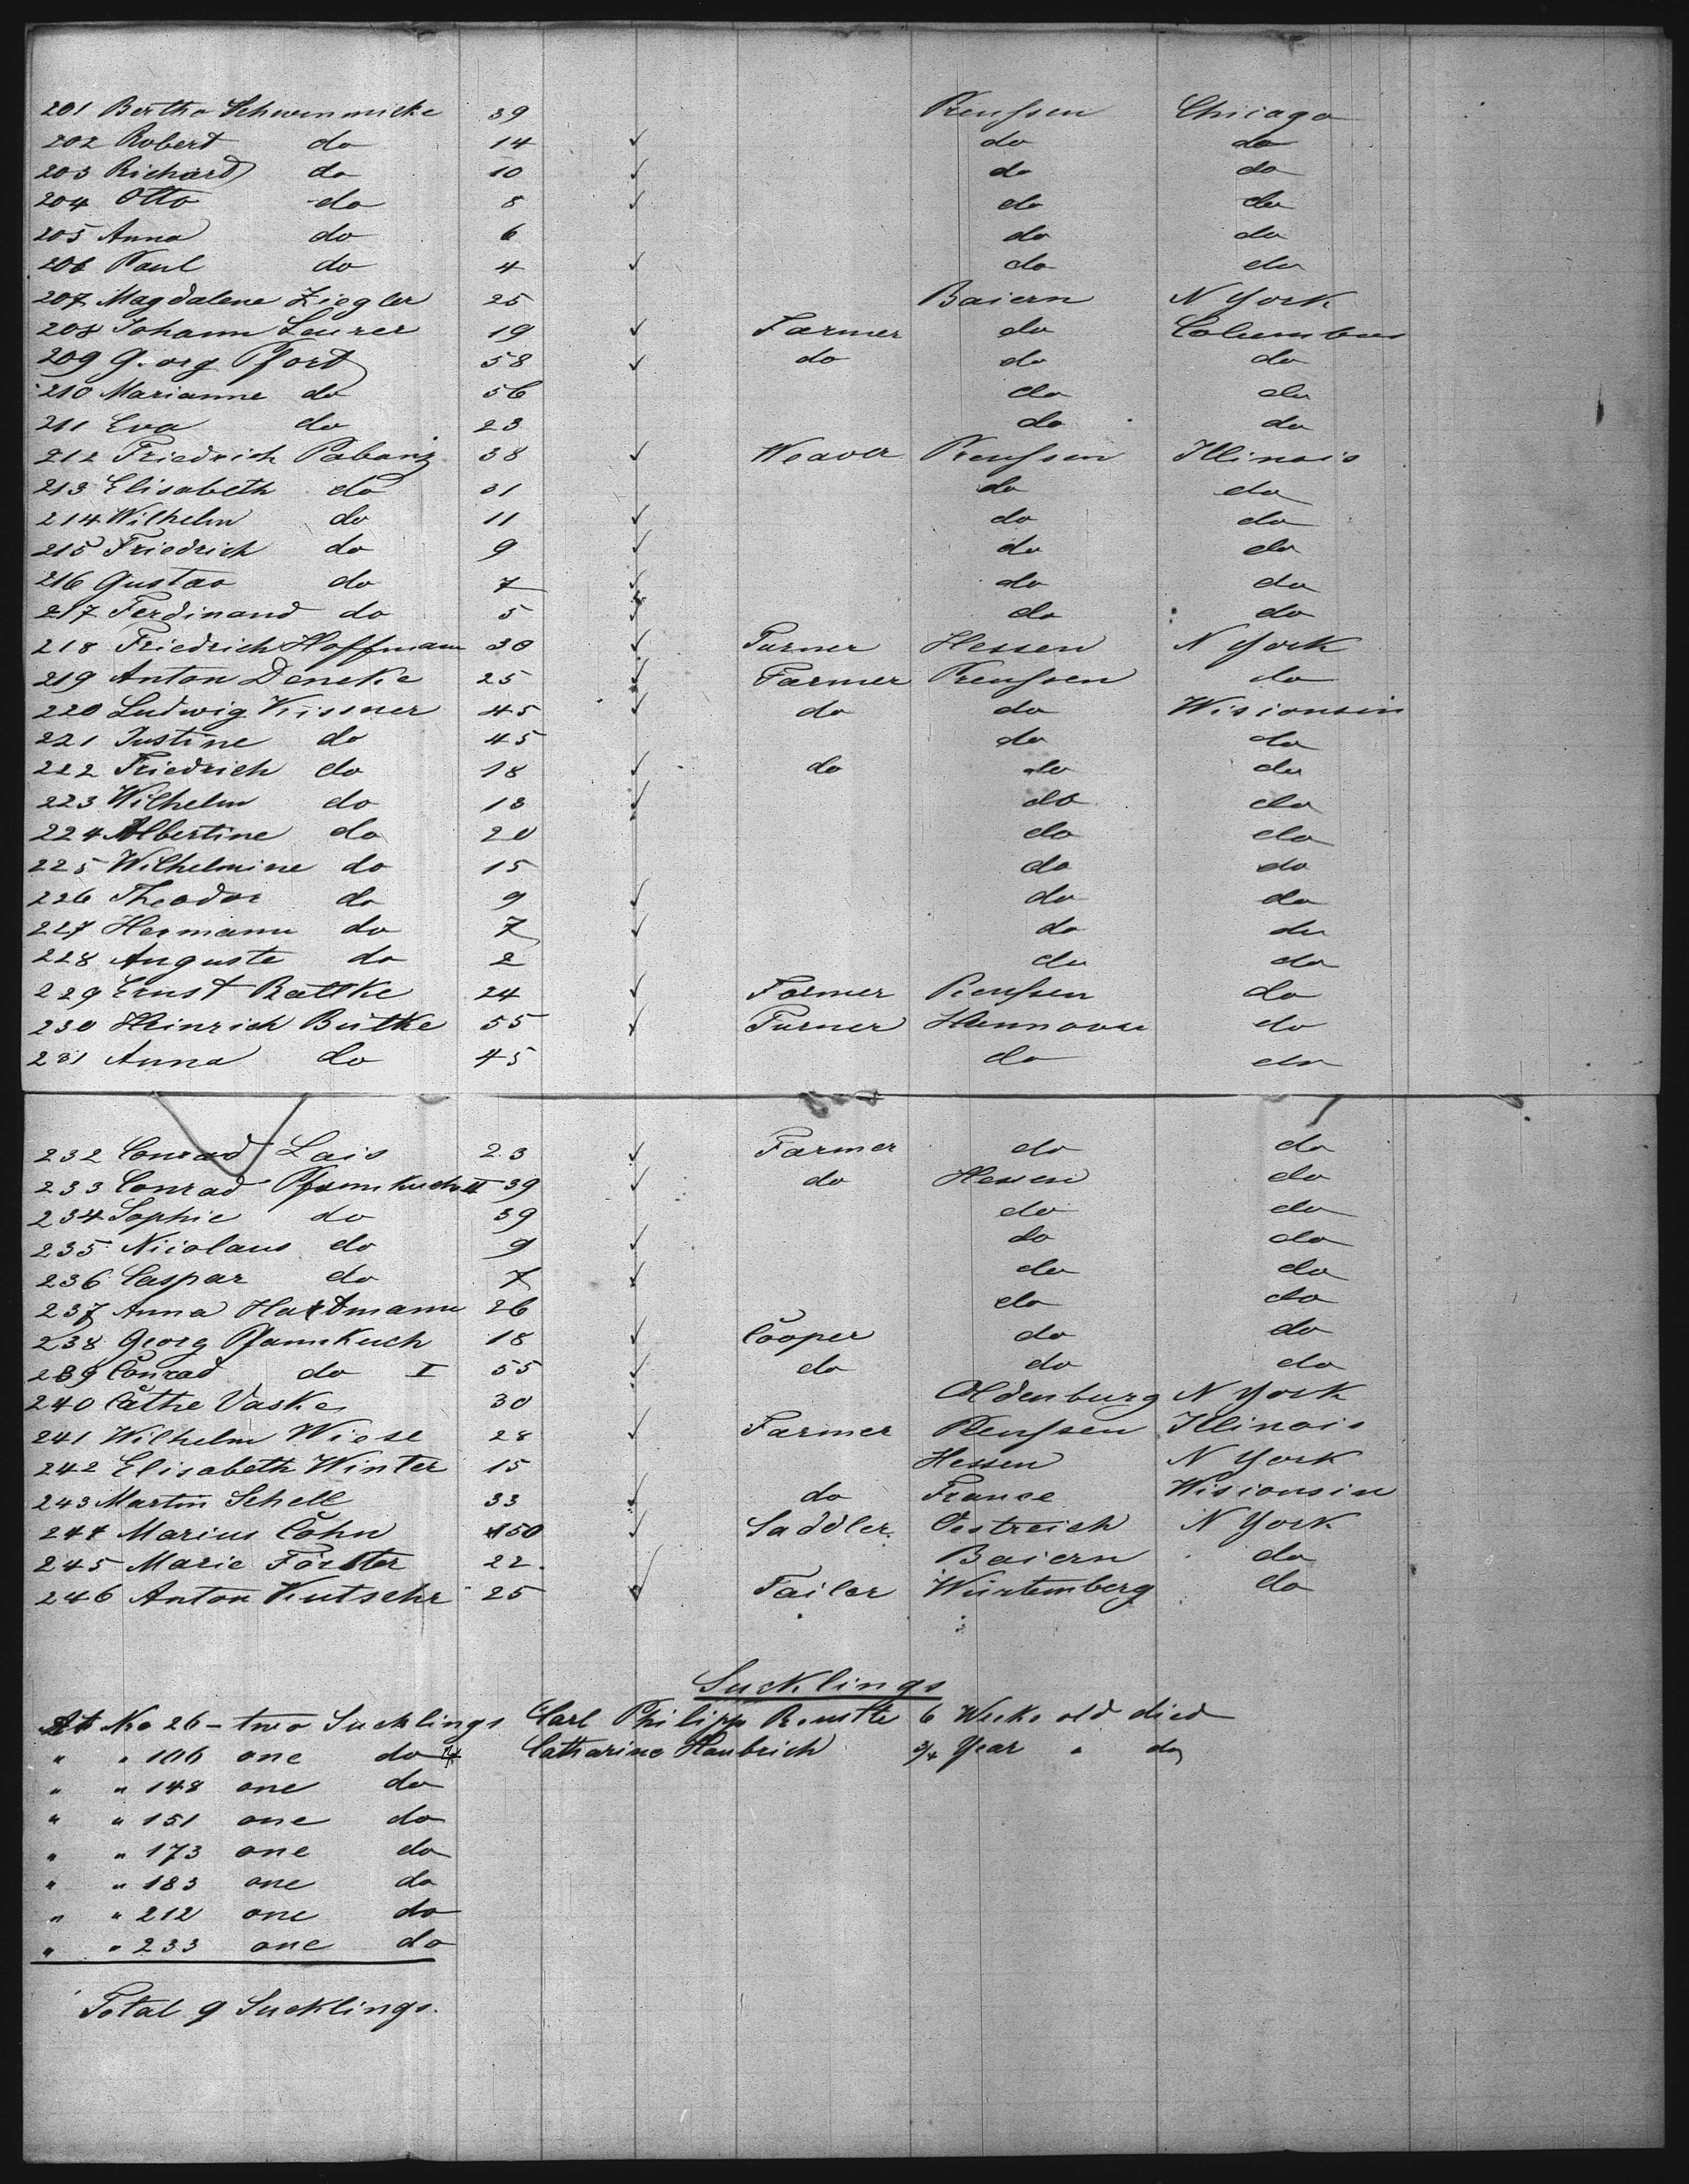 201 Bertha Schwenmicke 39 Preussen Chicago
202 Robert do 14 ✓ do do
203 Richard do 10 ✓ do do
204 Otto do 8 ✓ do do
205 Anna do 6 do do
206 Paul do 4 ✓ do do
207 Magdalene Ziegler 25 Baiern N York
208 Johann Leurer 19 ✓ Farmer do Columbus
209 Georg Pfort 58 ✓ do do do
210 Marianne do 56 do do
211 Eva do 23 do do
212 Friedrich Pabanz 38 ✓ Weaver Preussen Illinois
213 Elisabeth do 31 do do
214 Wilhelm do 11 ✓ do do
215 Friedrich do 9 ✓ do do
216 Gustav do 7 ✓ do do
217 Ferdinand do 5 ✓ do do
218 Friedrich Hoffmann 30 ✓ Turner Hessen N York
219 Anton Deneke 25 ✓ Farmer Preussen do
220 Ludwig Kissner 45 ✓ do do Wisconsin
221 Justine do 45 do do
222 Friedrich do 18 ✓ do do do
223 Wilhelm do 13 ✓ do do
224 Albertine do 20 do do
225 Wilhelmine do 15 do do
226 Theodor do 9 ✓ do do
227 Hermann do 7 ✓ do do
228 Auguste do 2 do do
229 Ernst Rattke 24 ✓ Farmer Preussen do
230 Heinrich Bütke 55 ✓ Turner Hannover do
231 Anna do 45 do do
232 Conrad Lais 23 ✓ Farmer do do
233 Conrad Pfannkuch II 39 ✓ do Hessen do
234 Sophie do 39 do do
235 Nicolaus do 9 ✓ do do
236 Caspar do 7 ✓ do do
237 Anna Hartmann 26 do do
238 Georg Pfannkuch 18 ✓ Cooper do do
239 Conrad do I 55 ✓ do do do
240 Cathe Vaske 30 Oldenburg N York
241 Wilhelm Wiese 28 ✓ Farmer Preussen Illinois
242 Elisabeth Winter 15 Hessen N York
243 Martin Schell 33 ✓ do France Wisconsin
244 Marius Cohn 50 ✓ Saddler Oestreich N York
245 Marie Förster 22 Baiern do
246 Anton Kutschr 25 ✓ Tailer Würtemberg do
Sucklings
At No 26 - two Sucklings Carl Philipp 6 Weeks old died
" " 106 one do Catharine Haubrich 3/4 Year " do
" " 148 one do
" " 151 one do
" " 173 one do
" " 183 one do
" " 212 one do
" " 233 one do
Total 9 Sucklings.